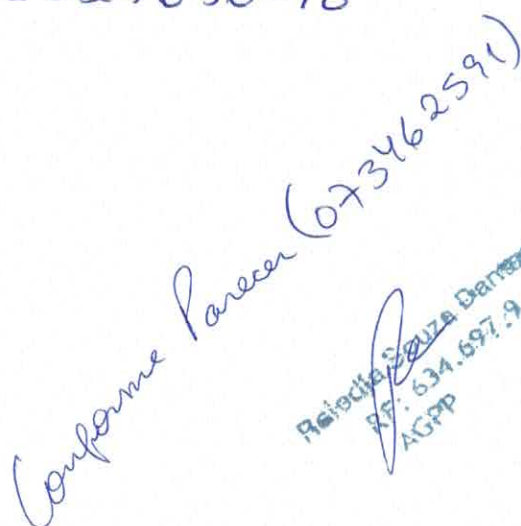 Conforme Parecer (073462591)
Souza Dantas
RF: 634.697.9
AGPP